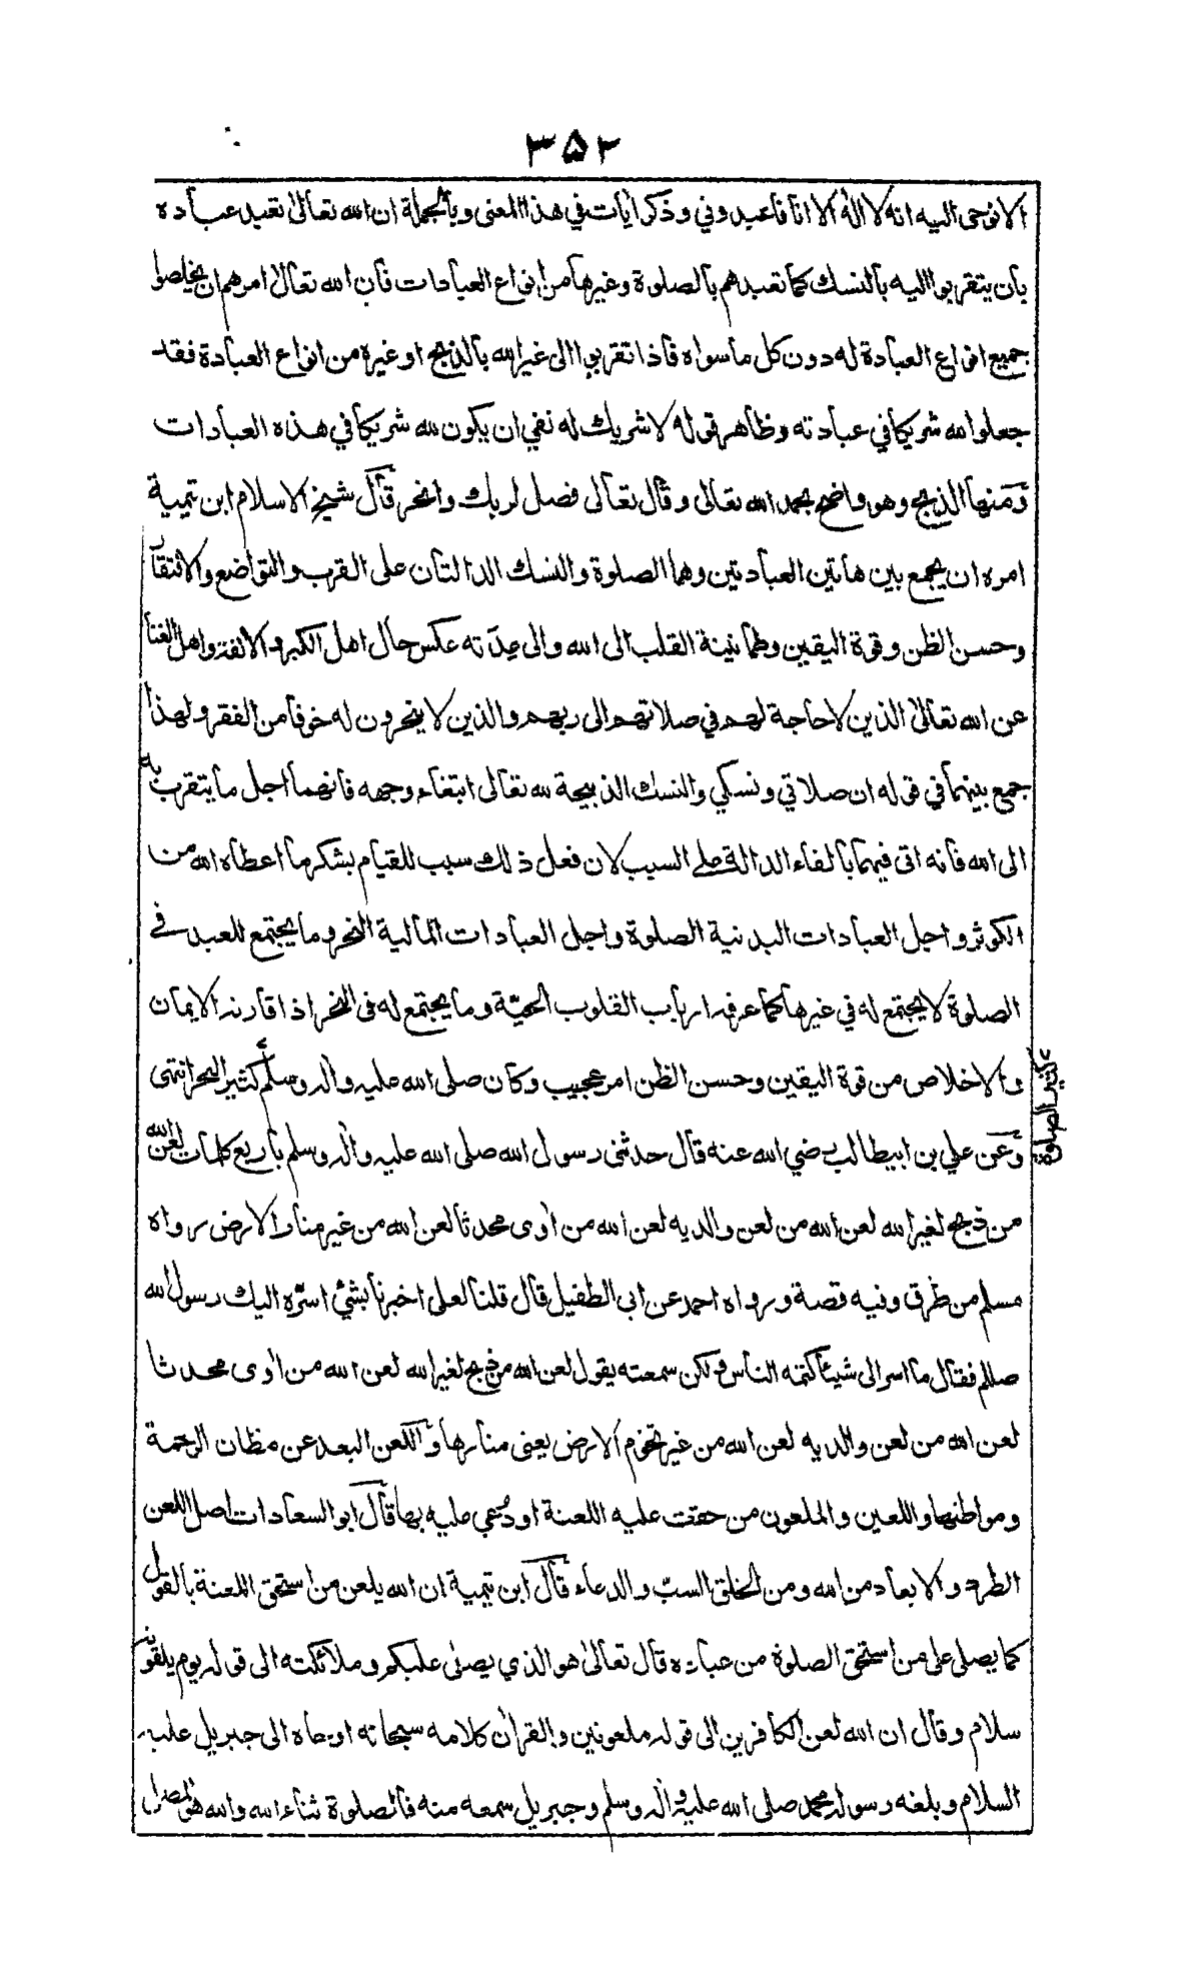 ٣٥٢
الا نوحى اليه انه لا اله الا انا فاعبدوني وذكر ايات في هذا المعنى وبالجملة ان الله تعالى تعبد عباده
بان يتقربوا اليه بالنسك كما تعبدهم بالصلوة وغيرها من انواع العبادات فان الله تعالى امرهم ان يخلصوا
جميع انواع العبادة له دون كل ما سواه فاذا تقربوا الى غير الله بالذبح او غيره من انواع العبادة فقد
جعلوا لله شريكا في عبادته وظاهر قوله لا شريك له نفي ان يكون لله شريكا في هذه العبادات
ومنها الذبح وهو واضح بحمد الله تعالى وقال تعالى فصل لربك وانحر قال شيخ الاسلام ابن تيمية
امره ان يجمع بين هاتين العبادتين وهما الصلوة والنسك الدالتان على القرب والتواضع والافتقار
وحسن الظن وقوة اليقين وطمانينة القلب الى الله والى عدته عكس حال اهل الكبر والانفة واهل الغنا
عن الله تعالى الذين لا حاجة لهم في صلاتهم الى ربهم والذين لا ينحرون له خوفا من الفقر ولهذا
جمع بينهما في قوله ان صلاتي ونسكي والنسك الذبيحة لله تعالى ابتغاء وجهه فانهما اجل ما يتقرب به
الى الله فانه اتى فيهما بالفاء الدالة على السبب لان فعل ذلك سبب للقيام بشكر ما اعطاه الله من
الكوثر واجل العبادات البدنية الصلوة واجل العبادات المالية النحر وما يجتمع للعبد في
الصلوة لا يجتمع له في غيرها كما عرفه ارباب القلوب الحيّة وما يجتمع له فى النحر اذا قارنه الايمان
والاخلاص من قوة اليقين وحسن الظن امر عجيب وكان صلى الله عليه واله وسلم كثير النحر انتهى
كثير الصلوة
وعن علي بن ابيطالب رضي الله عنه قال حدثنى رسول الله صلى الله عليه واله وسلم باربع كلمات لعن الله
من ذبح لغير الله لعن الله من لعن والديه لعن الله من اوى محدثا لعن الله من غير منار الارض رواه
مسلم من طرق وفيه قصة ورواه احمد عن ابى الطفيل قال قلنا لعلى اخبرنا بشئ اسرّه اليك رسول الله
صللم فقال ما اسر الى شيئا كتمه الناس ولكن سمعته يقول لعن الله من ذبح لغير الله لعن الله من اوى محدثا
لعن الله من لعن والديه لعن الله من غير تخوم الارض يعنى منارها واللعن البعد عن مظان الرحمة
ومواطنها واللعين والملعون من حقت عليه اللعنة او دُعي عليه بها قال ابو السعادات اصل اللعن
الطرد والابعاد من الله ومن الخلق السبّ والدعاء قال ابن تيمية ان الله يلعن من استحق اللعنة بالقول
كما يصلى على من استحق الصلوة من عباده قال تعالى هو الذي يصلى عليكم وملائكته الى قوله يوم يلقونه
سلام وقال ان الله لعن الكافرين الى قوله ملعونين والقران كلامه سبحانه اوحاه الى جبريل عليه
السلام وبلغه رسوله محمد صلى الله عليه واله وسلم وجبريل سمعه منه فالصلوة ثناء الله والله هو المصلى